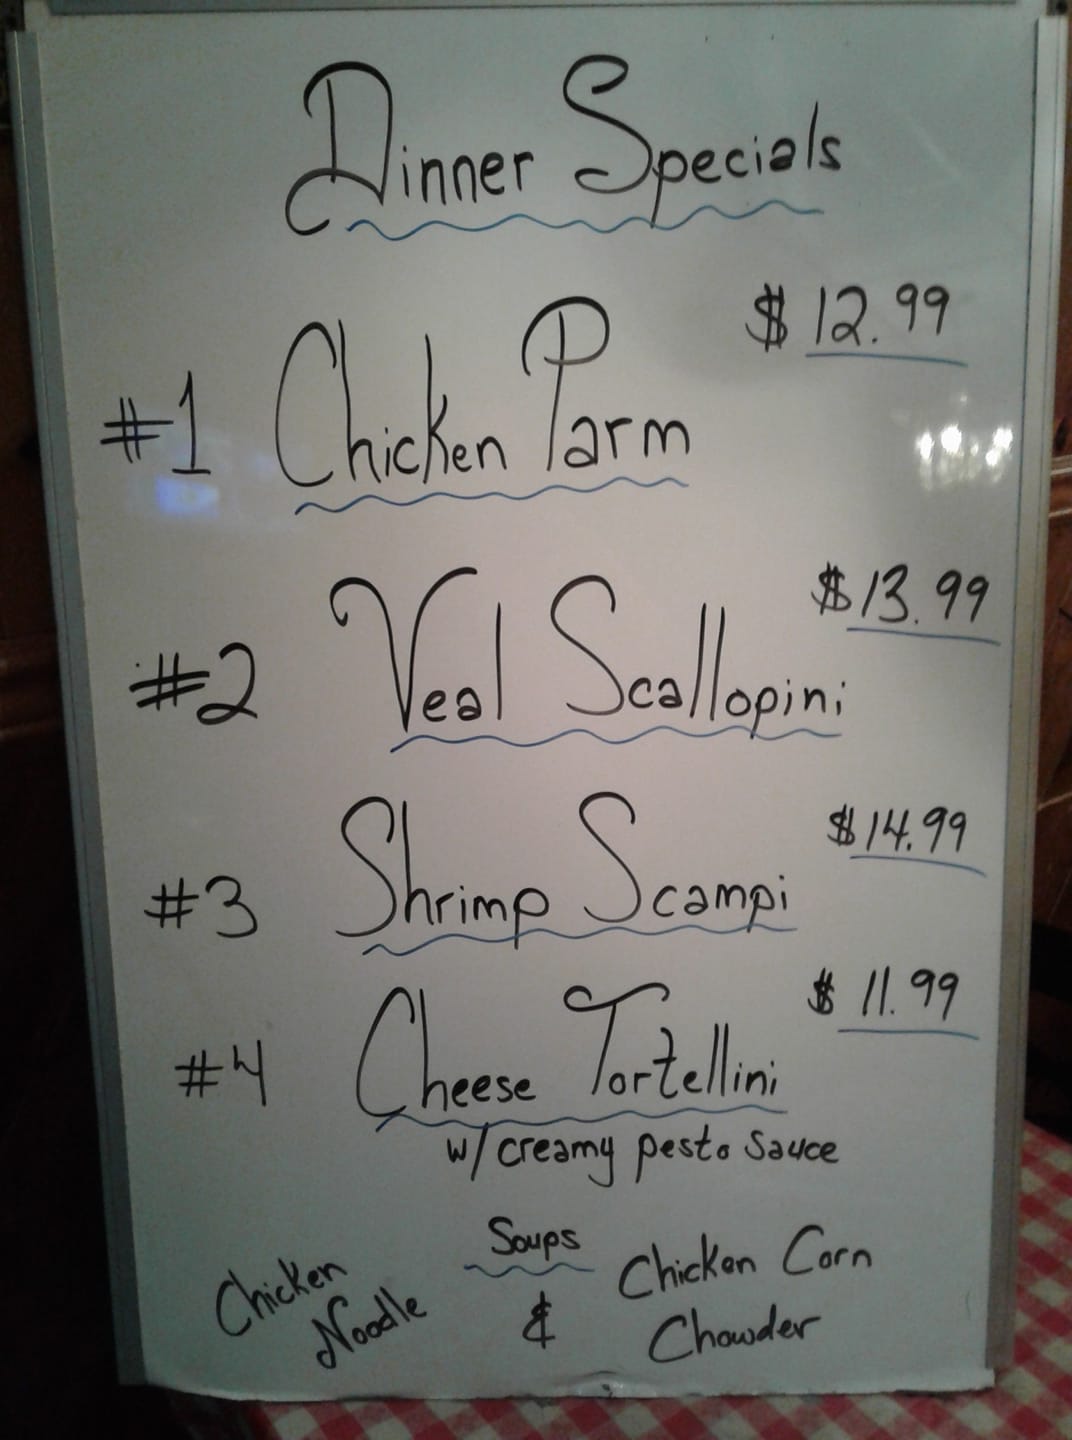 Dinner Specials
$ 12.99
#1 Chicken Parm
$ 13.99
#2 Veal Scallopini
$ 14.99
#3 Shrimp Scampi
$ 11.99
#4 Cheese Tortellini
w/ creamy pesto sauce
Soups
Chicken Noodle
&
Chicken Corn
Chowder